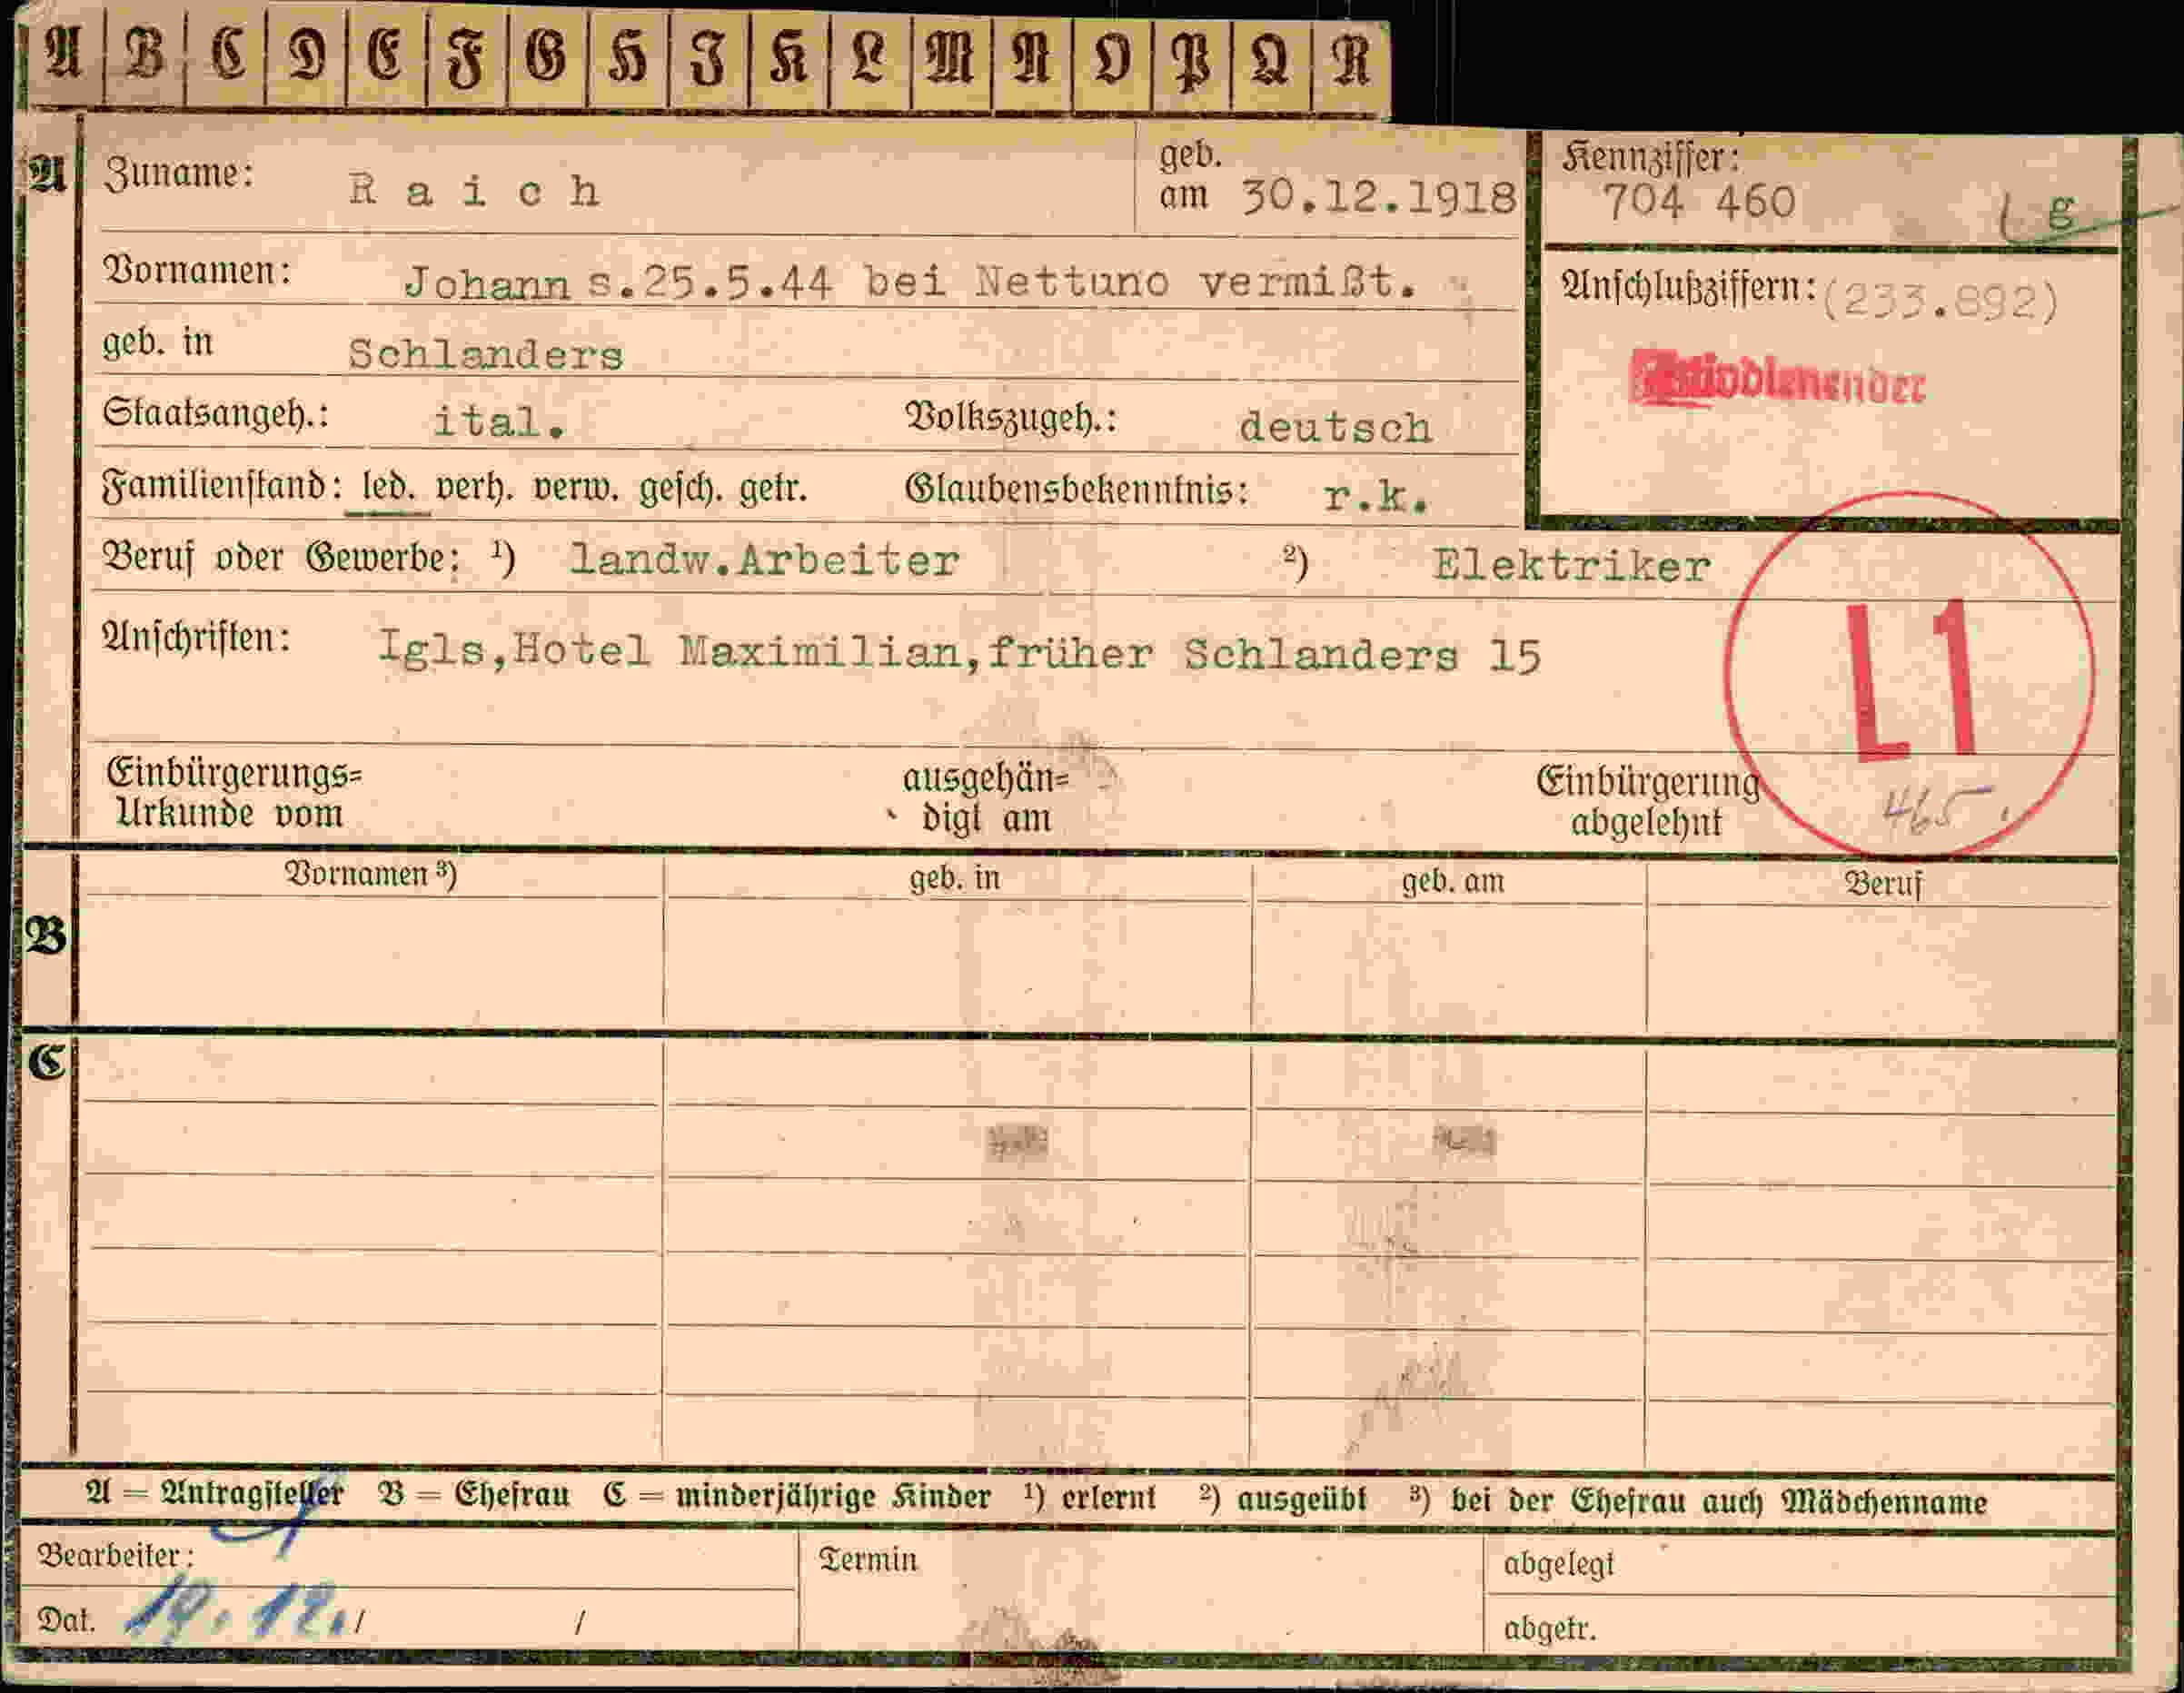 A B C D E F G H I K L M N O P Q R
A Zuname: Raich geb. am 30.12.1918 Kennziffer: 704 460 g
Vornamen: Johann s.25.5.44 bei Nettuno vermißt. Anschlußziffern: (233.892)
geb. in Schlanders
Staatsangeh.: ital. Volkszugeh.: deutsch
Familienstand: led. verh. verw. gesch. getr. Glaubensbekenntnis: r.k.
Beruf oder Gewerbe: ¹) landw.Arbeiter ²) Elektriker
Anschriften: Igls,Hotel Maximilian,früher Schlanders 15
L1
Einbürgerungs= ausgehän= Einbürgerung 465
Urkunde vom digt am abgelehnt
Vornamen ³) geb. in geb. am Beruf
B
C
A = Antragsteller B = Ehefrau C = minderjährige Kinder ¹) erlernt ²) ausgeübt ³) bei der Ehefrau auch Mädchenname
Bearbeiter: Termin abgelegt
Dat. 19.12. / / abgetr.